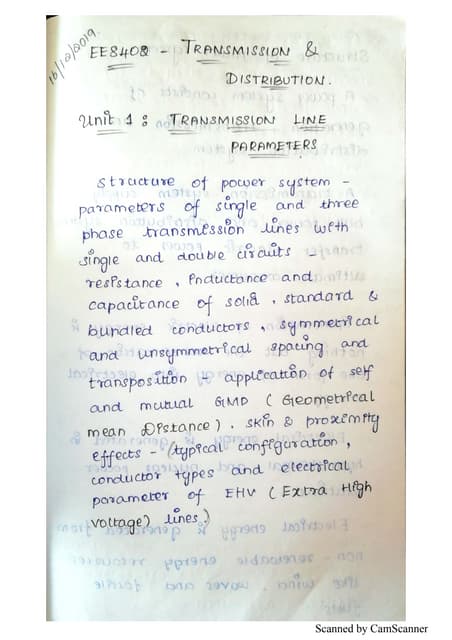 16/12/2019.
EE8402 - TRANSMISSION &
DISTRIBUTION.
Unit 1 : TRANSMISSION LINE
PARAMETERS
Structure of power system -
parameters of single and three
phase transmission lines with
single and double circuits -
resistance, inductance and
capacitance of solid, standard &
bundled conductors, symmetrical
and unsymmetrical spacing and
transposition - application of self
and mutual GMD (Geometrical
mean Distance). skin & proximity
effects - (typical configuration,
conductor types and electrical
parameter of EHV (Extra High
voltage) lines.)
Scanned by CamScanner